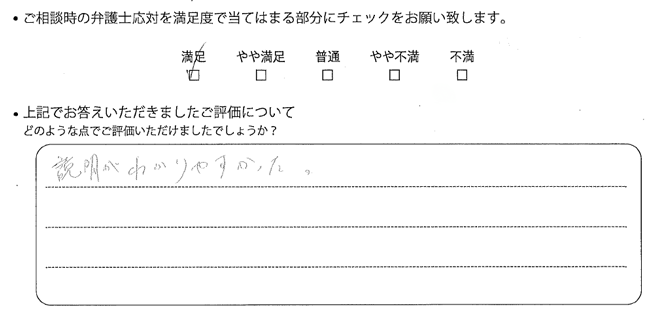 • ご相談時の弁護士応対を満足度で当てはまる部分にチェックをお願い致します。
満足 やや満足 普通 やや不満 不満
☑ □ □ □ □
• 上記でお答えいただきましたご評価について
どのような点でご評価いただけましたでしょうか？
説明がわかりやすかった。